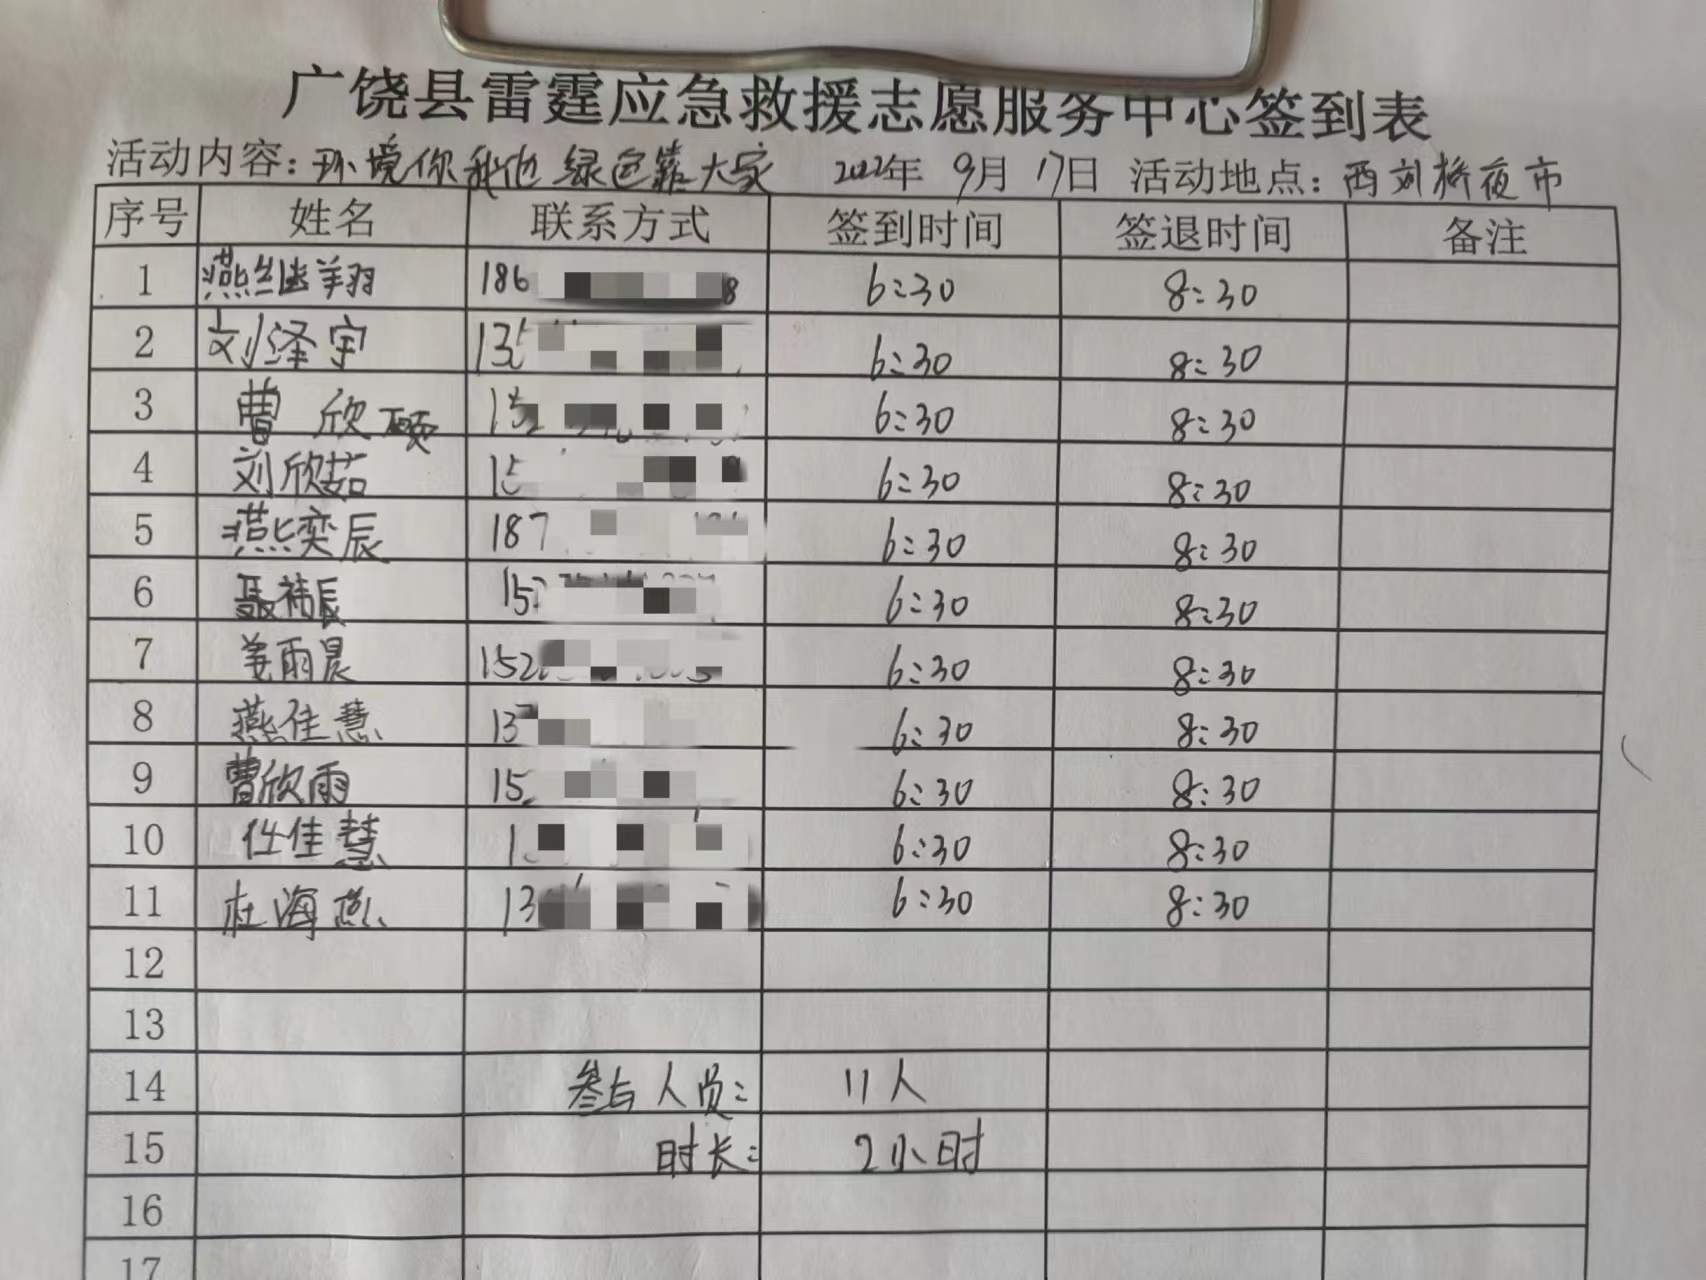 广饶县雷霆应急救援志愿服务中心签到表
活动内容：环境你我他 绿色靠大家 2022年 9月 17日 活动地点：西刘桥夜市
序号 姓名 联系方式 签到时间 签退时间 备注
1 燕继翔 186 8 6:30 8:30
2 刘泽宇 135 6:30 8:30
3 曹欣硕 15 6:30 8:30
4 刘欣茹 15 6:30 8:30
5 燕奕辰 187 6:30 8:30
6 聂祎辰 15 6:30 8:30
7 姜雨晨 152 6:30 8:30
8 燕佳慧 13 6:30 8:30
9 曹欣雨 15 6:30 8:30
10 任佳慧 1 6:30 8:30
11 杜海燕 13 6:30 8:30
12
13
14 参与人员: 11人
15 时长: 2小时
16
17